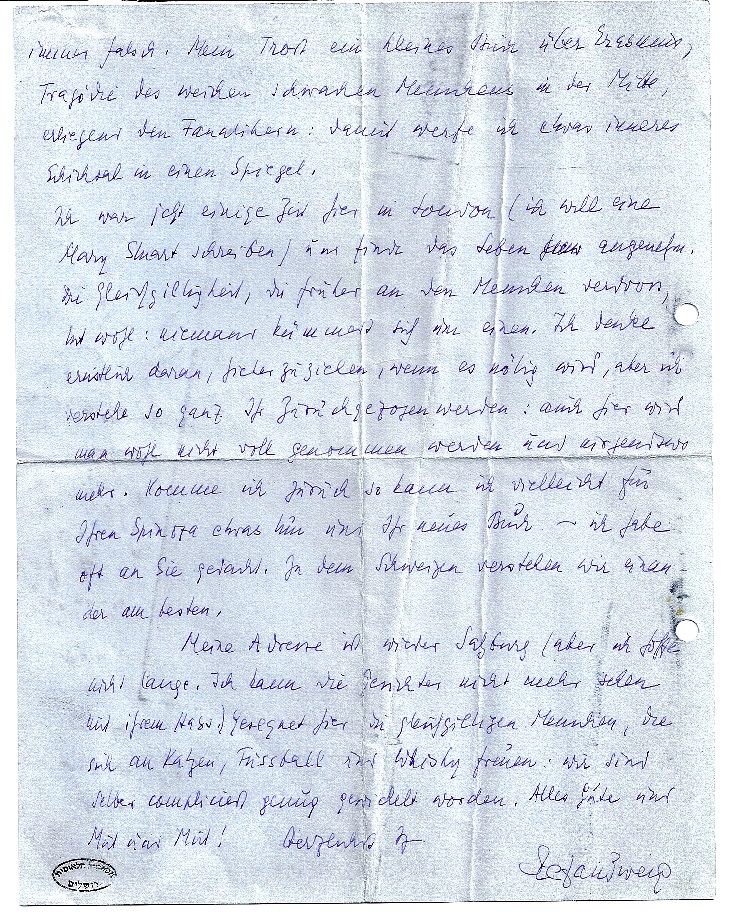 immer falsch. Mein Trost ein kleines Buch über Erasmus,
Tragödie des weichen schwachen Menschens in der Mitte,
erliegend den Fanatikern: damit werfe ich etwas inneres
Schicksal in einen Spiegel.
Ich war jetzt einige Zeit hier in London (ich will eine
Mary Stuart schreiben) und finde das Leben angenehm.
Die Gleichgiltigkeit, die früher an den Menschen verdross,
tut wohl: niemand kümmert sich um einen. Ich denke
ernstlich daran, hierherzuziehen, wenn es nötig wird, aber ich
verstehe so ganz Ihr Zurückgezogenwerden: auch hier wird
man wohl nicht voll genommen werden und nirgendswo
mehr. Komme ich zurück so kann ich vielleicht für
Ihren Spinoza etwas tun und Ihr neues Buch – ich habe
oft an Sie gedacht. In dem Schweigen verstehen wir einan-
der am besten.
Meine Adresse ist wieder Salzburg (aber ich hoffe
nicht lange. Ich kann die Gesichter nicht mehr sehen
mit ihrem Hass.) Gesegnet hier die gleichgiltigen Menschen, die
sich an Katzen, Fussball und Whisky freuen: wir sind
selber compliciert genug gewickelt worden. Alles Gute und
Mut und Mut! Herzlichst Ihr
Stefan Zweig
ירושלים